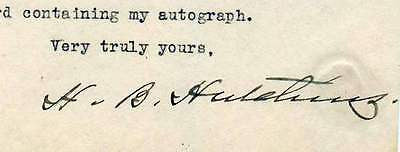 rd containing my autograph.
Very truly yours,
H. B. Hutchins.